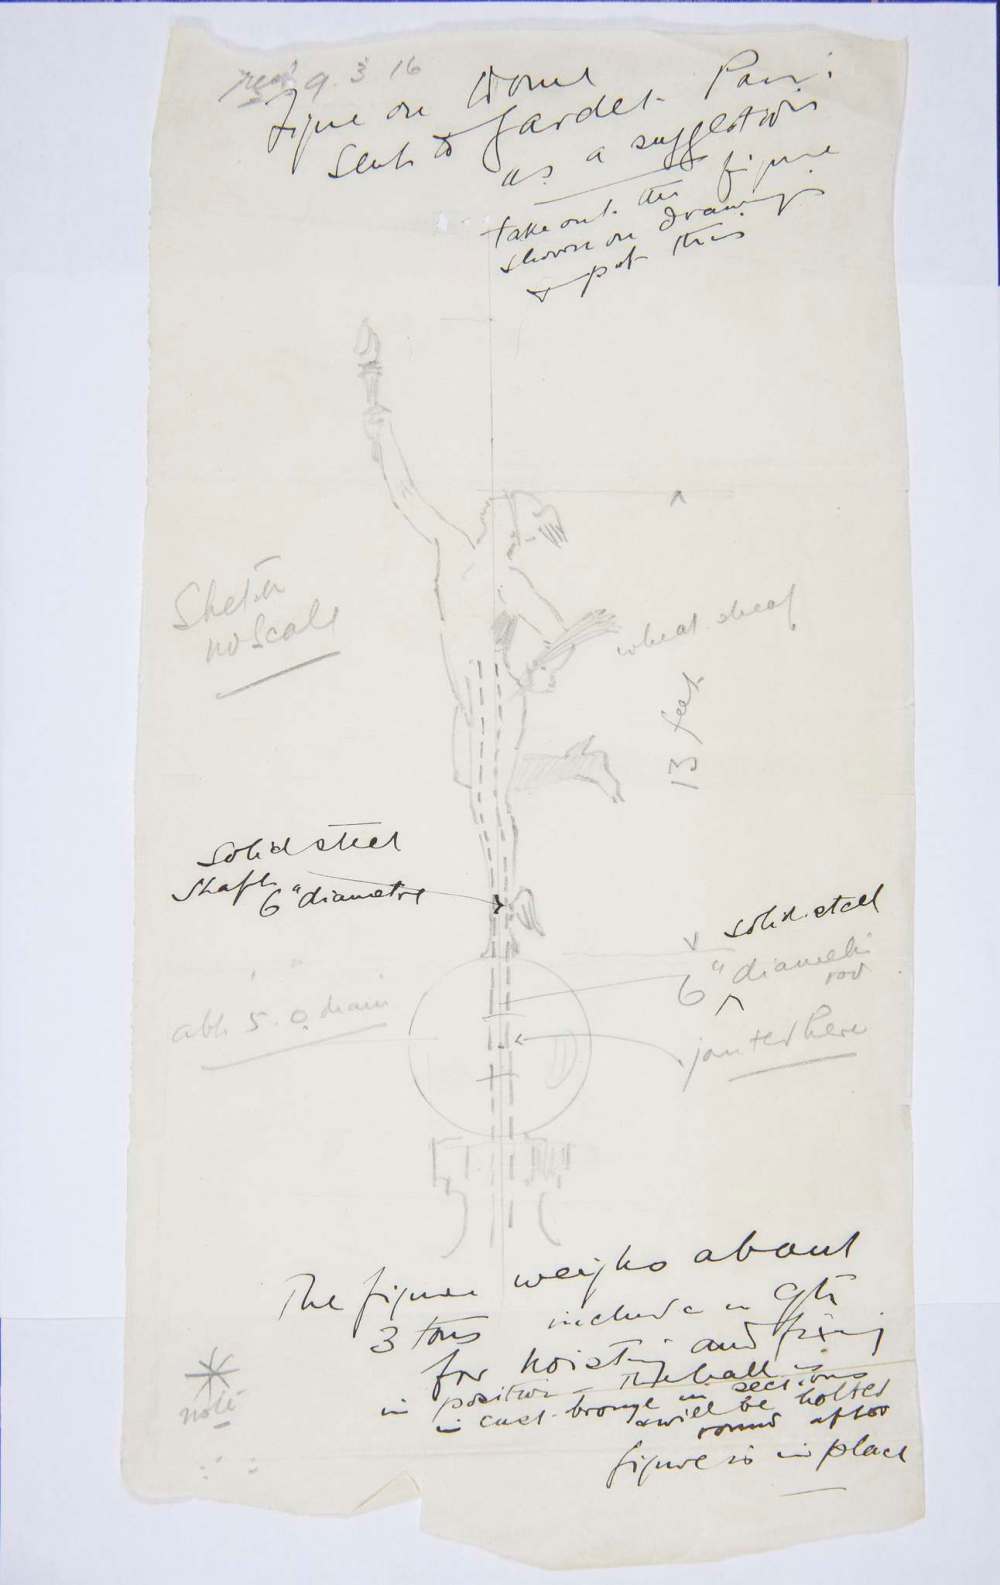 recd 9 3 16
Figure on Dome
sent to Gardet Paris
as a suggestion
take out the figure
shown on drawings
& put this
Sketch
no Scale
wheat sheaf
13 feet
Solid steel
Shaft
6" diametre
solid steel
6" diametre
rod
abt 5.0 diam
jointed here
The figure weighs about
3 tons include in Qts
for hoisting and fixing
in position The ball is
in cast bronze in sections
& will be bolted
round after
figure is in place
note